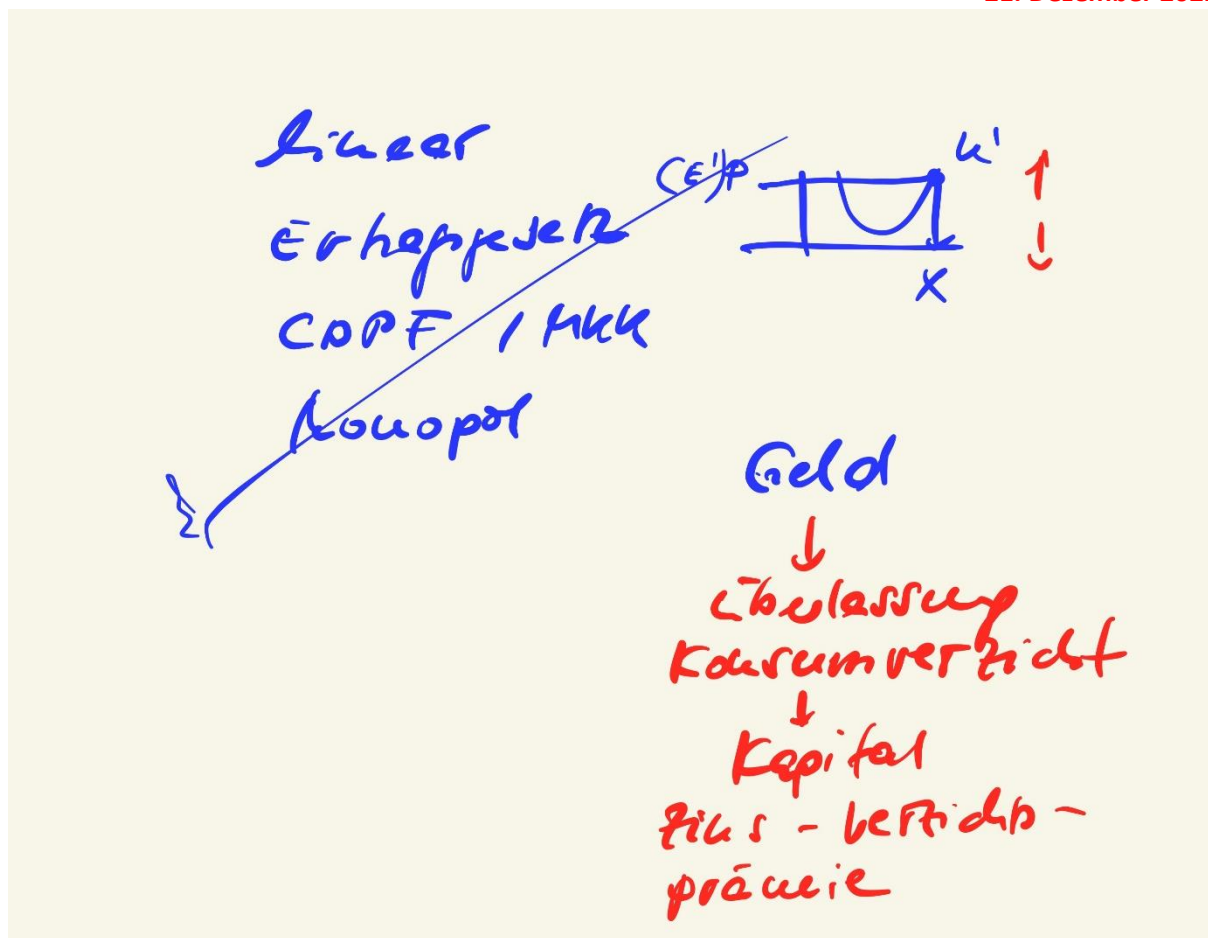 linear
Ertragsgesetz
CDPF / MKK
Monopol
(E')p
K'
x
Geld
Überlassung
Konsumverzicht
Kapital
Zins - Verzichts -
prämie